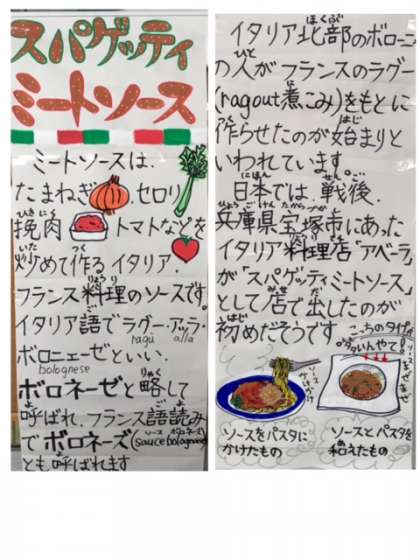 スパゲッティ
ミートソース
ミートソースは、
たまねぎ セロリ
挽肉 トマトなどを
炒めて作る イタリア、
フランス料理のソースです。
イタリア語でラグー・アッラ・
ragù alla
ボロニェーゼといい、
bolognese
ボロネーゼと略して
呼ばれ、フランス語読み
でボロネーズ(sauce bolognaise)
とも呼ばれます
イタリア北部のボローニ
の人がフランスのラグー
(ragout煮こみ)をもとに
作らせたのが始まりと
いわれています
日本では、戦後、
兵庫県宝塚市にあった
イタリア料理店「アベーラ」
が「スパゲッティミートソース」
として店で出したのが
初めだそうです。
こっちのタイプが
多いんやて!
ソースをパスタに
かけたもの
ソースとパスタを
和えたもの